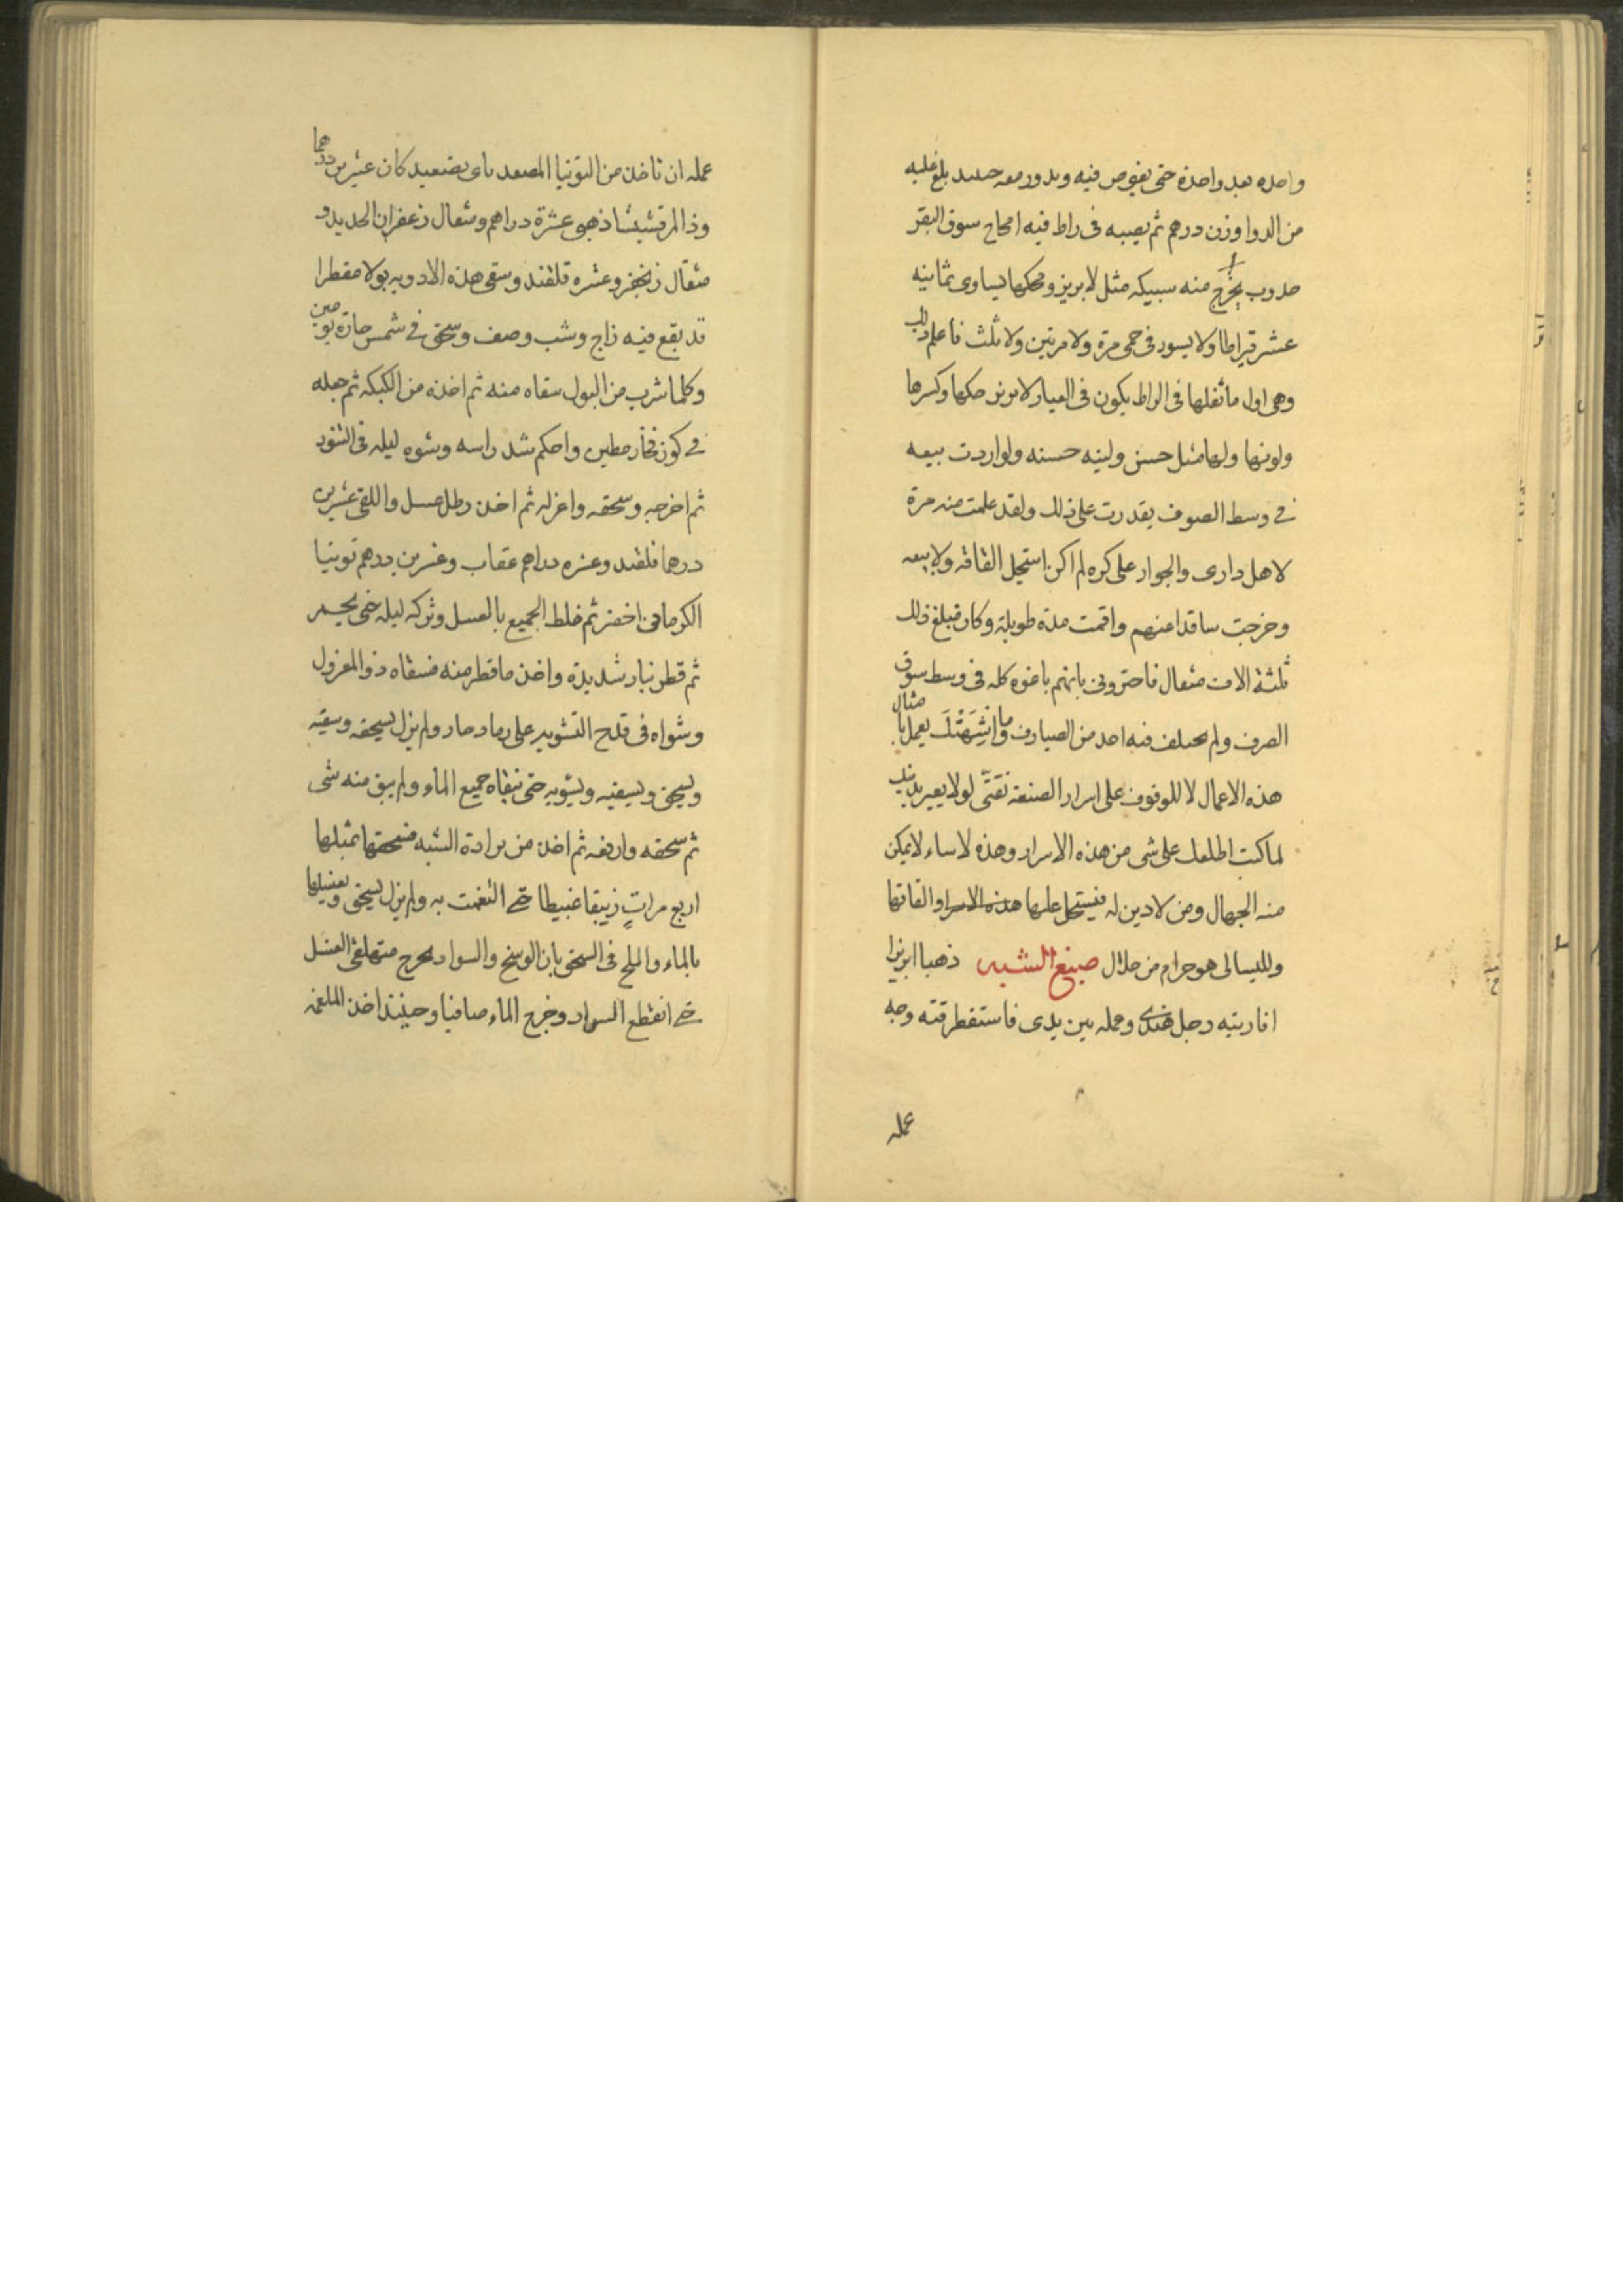 واحده بعد واحدة حتى يغوص فيه ويدور معه حديد بلغ عليه
من الدوا وزن درهم ثم يصبه فى راط فيه امحاح سوق البقر
مدوب يخرج منه سبيكه مثل لابريز ومحكها يساوى ثمانيه
عشر قيراطا ولا يسود فى حمى مرة ولا مرتين ولا ثلث فاعلم ذلك
وهى اول ما تقلبها فى الراط يكون فى العيار لابريز حكها وكسرها
ولونها ولها مثل حسن ولينه حسنه ولو اردت بيعه
فى وسط الصوف يقدرت على ذلك ولقد علمت منه مرة
لاهل دارى والجوار على كره لم اكن استحل القاقه ولا بيعه
وخرجت ساقدا عنهم واقمت مدة طويلة وكان مبلغ ذلك
ثلثة الاف مثقال فاخبرونى بانهم باعوه كله فى وسط سوق
الصرف ولم يختلف فيه احد من الصيارف وما انشهتك يعمل يا مثال
هذه الاعمال لا للوقوف على اسرار الصنعة نقتى لولا يعير بدينك
لما كنت اطلعك على شى من هذه الاسرار وهذه لاساء لا يمكن
منه الجهال ومن لا دين له فيستحل عليها هذه الاسرار والقاقها
ولليسالى هو حرام من حلال صبغ الشبه ذهبا ابريزا
انا ريته رجل هندى وعمله بين يدى فاستقطرقته وجه
عمله
عمله ان تاخذ من التوتيا المصعد باى تصعيد كان عشرين درهما
وذا المرقشيشا ذهبى عشرة دراهم ومثقال زعفران الحديد و
مثقال زنجفر وعشره قلقند وسقى هذه الادويه بولا مقطرا
قد نقع فيه زاج وشب وصف وسحق فى شمس حارة يومين
وكلما شرب من البول سقاه منه ثم اخذه من الكبكه ثم جعله
فى كوز فخار مطين واحكم شد راسه وشوه ليله فى التنور
ثم اخرجه وسحقه واعزله ثم اخذ رطل عسل والقى عشرين
درهما قلقند وعشره دراهم عقاب وعشرين درهم توتيا
الكرمانى اخضر ثم خلط الجميع بالعسل وتركه ليله حتى يحمر
ثم قطر بنار شديدة واخذ ما قطر منه فسقاه ذو المعزول
وشواه فى قدح التشويه على رماد حار ولم يزل يسحقه وسقيه
ويسحق ويسقيه ويشويه حتى سقاه جميع الماء ولم يبق منه شى
ثم سحقه وارفعه ثم اخذ من برادة الشبه فسحقها بمثلها
اربع مراتٍ زيبقا عبيطا حتى التغمت به ولم يزل يسحق ويغسلها
بالماء والملح فى السحق بان الوسخ والسواد يخرج منها فى الغسل
حتى انقطع السواد وخرج الماء صافيا وحينئذ اخذ الملغمه